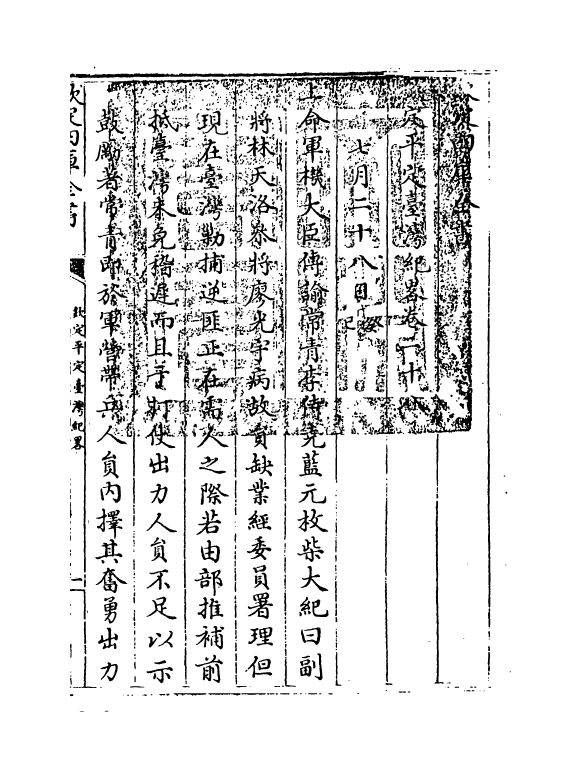 欽定四庫全書
欽定平定臺灣紀畧卷二十
七月二十八日
上命軍機大臣傳諭常青李侍堯藍元枚柴大紀曰副
將林天洛叅將廖光宇病故員缺業經委員署理但
現在臺灣勦捕逆匪正在需人之際若由部推補前
抵臺灣未免稽遲而且于打仗出力人員不足以示
鼓勵著常青即於軍營帶兵人員內擇其奮勇出力
欽定四庫全書
欽定平定臺灣紀畧
一